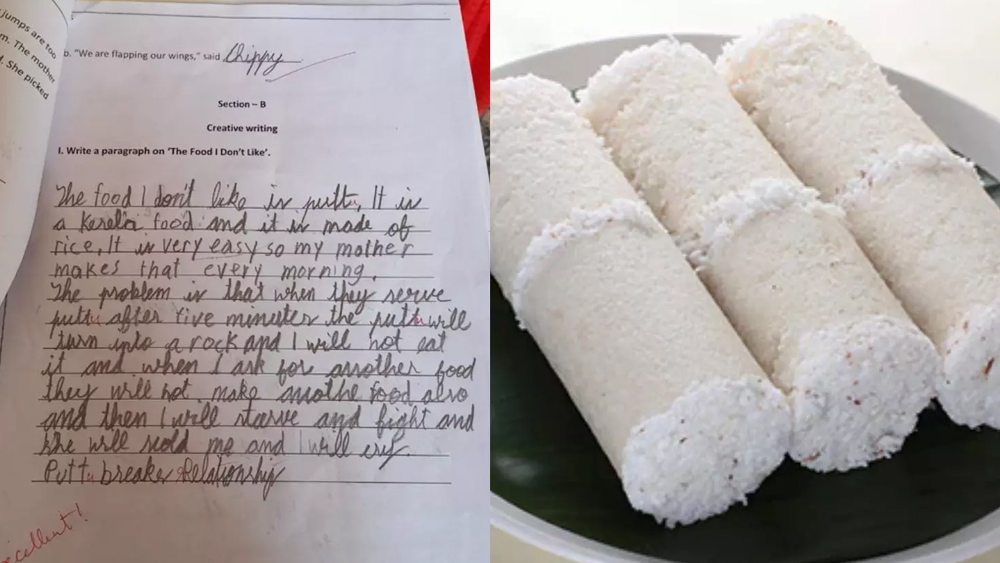 jumps are too
m. The mother
. She picked
b. "We are flapping our wings," said Chippy
Section – B
Creative writing
I. Write a paragraph on 'The Food I Don't Like'.
The food I don't like is puttu. It is
a Kerela food and it is made of
rice. It is very easy so my mother
makes that every morning.
The problem is that when they serve
puttu after five minutes the puttu will
turn into a rock and I will not eat
it and when I ask for another food
they will not make anothe food also
and then I will starve and fight and
she will scold me and I will cry.
Puttu breakes Relationship
excellent!